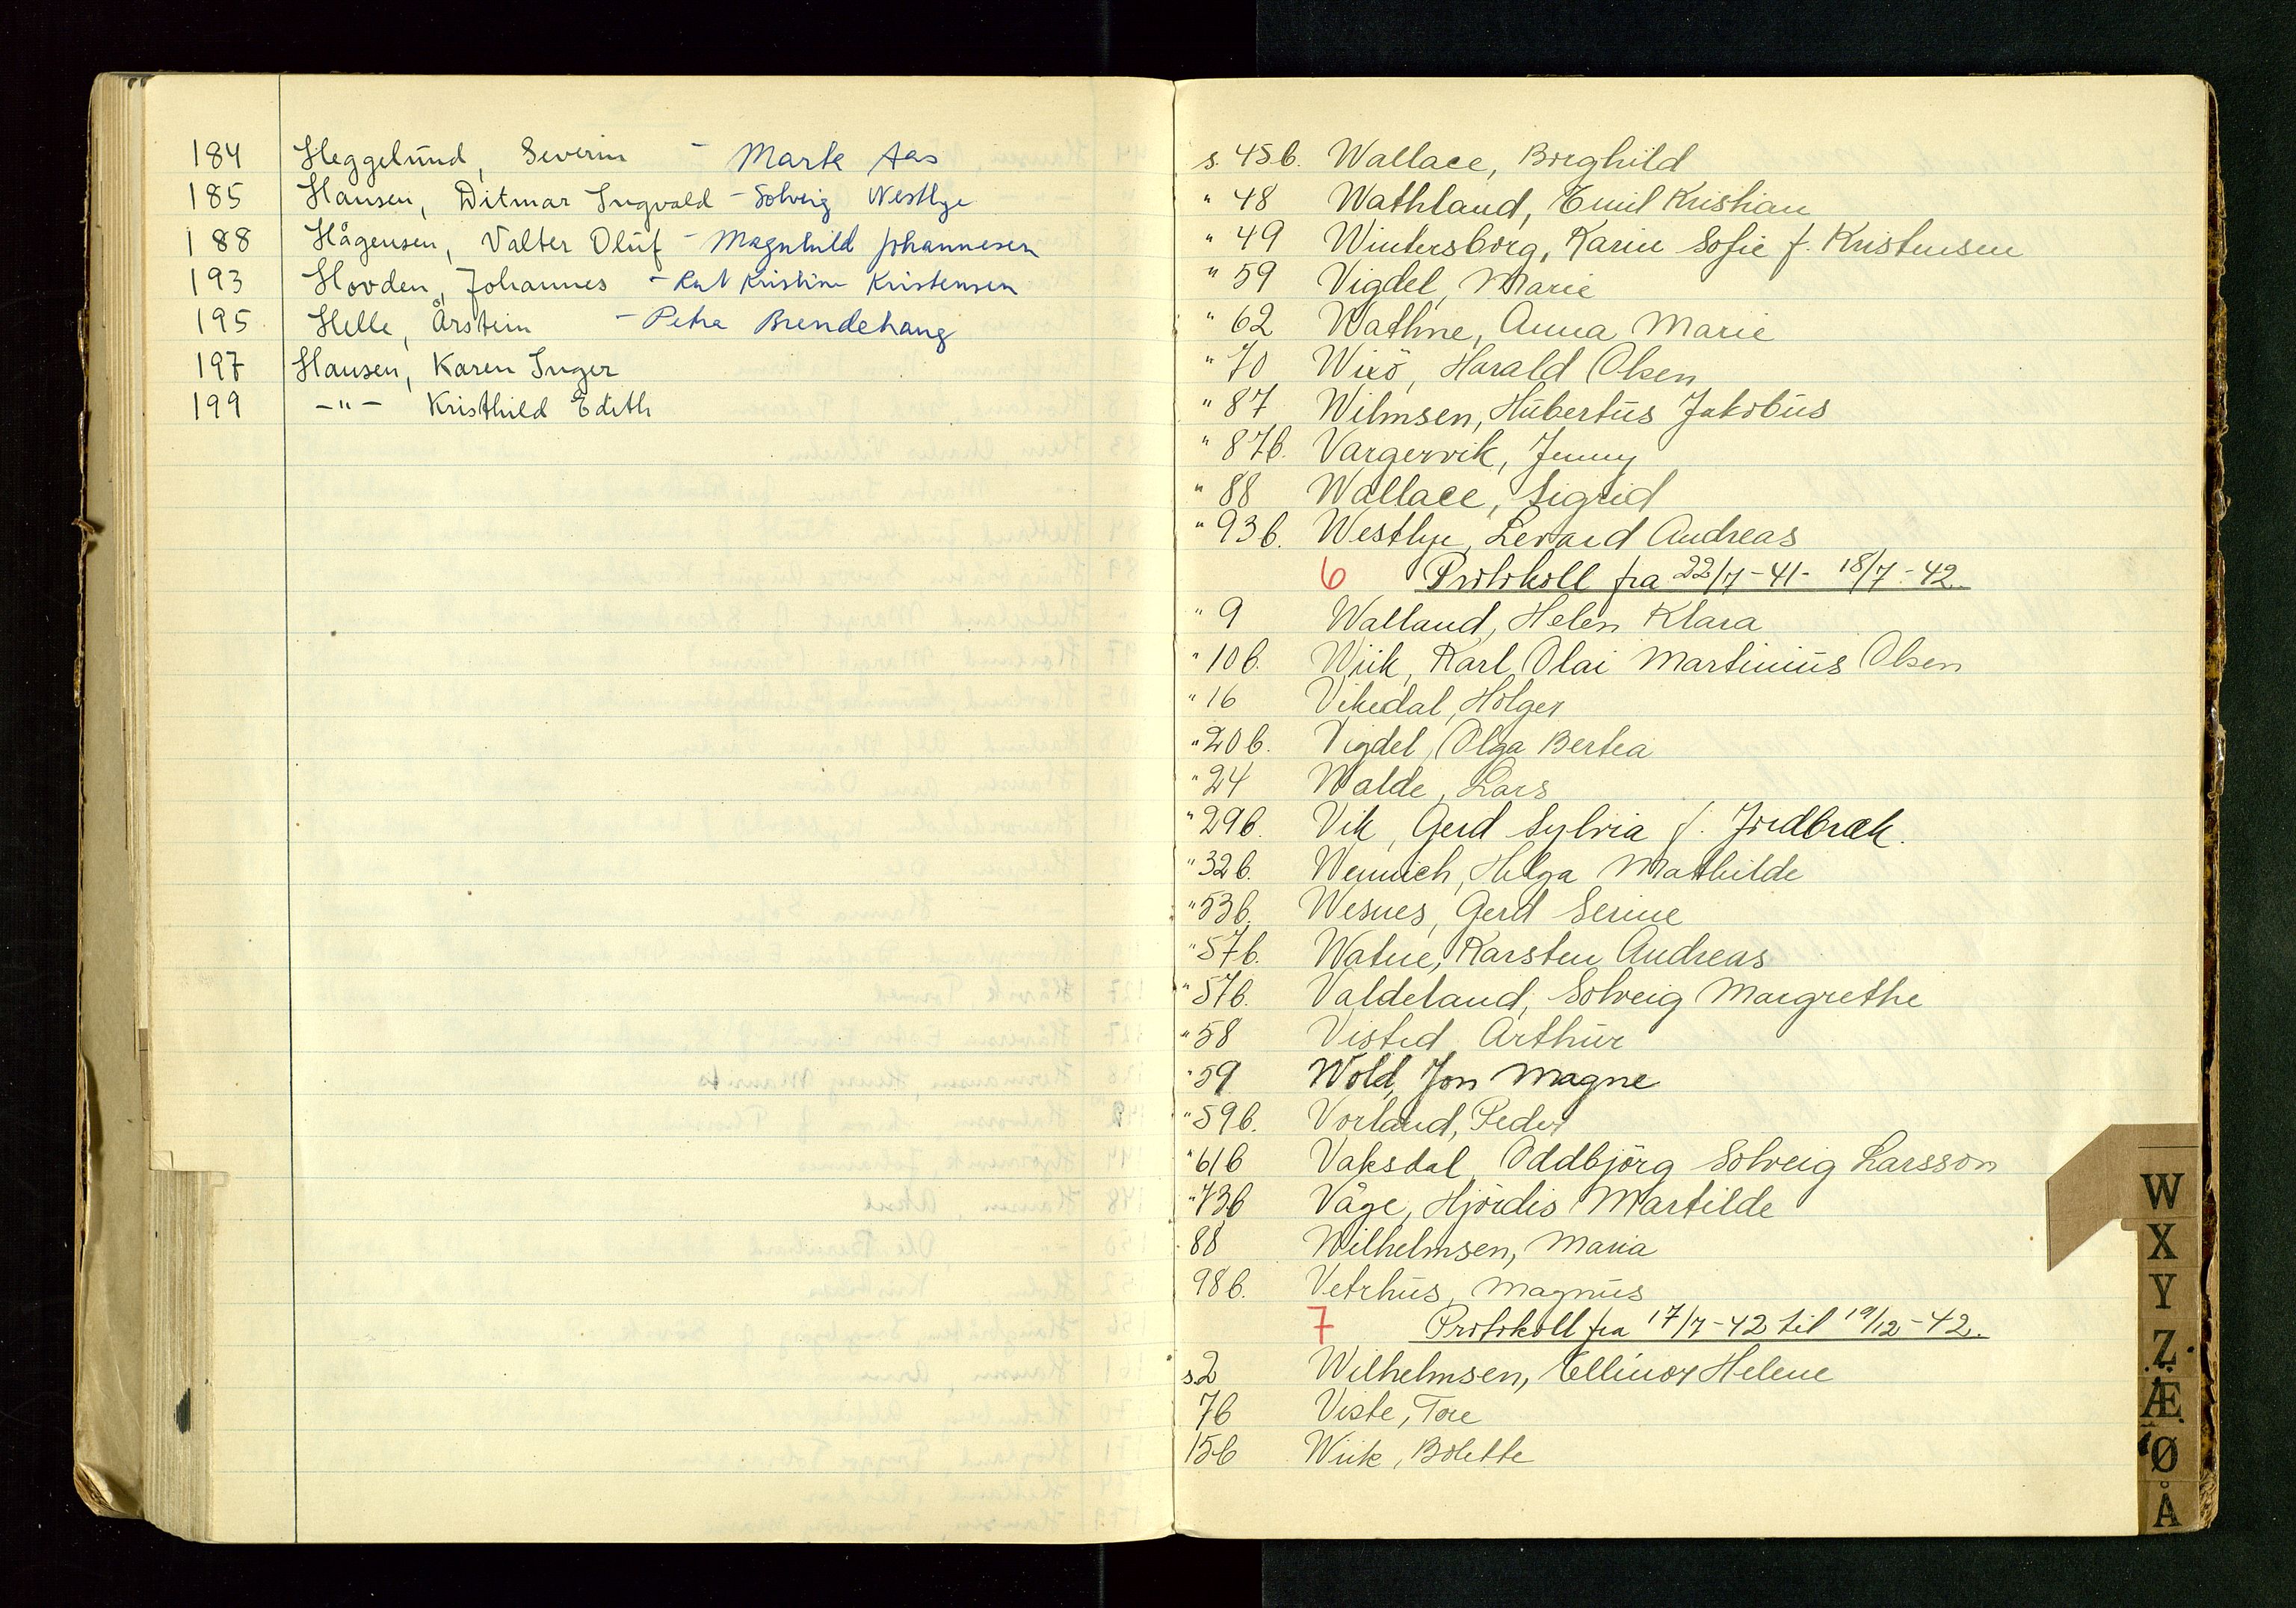 184 Heggelund, Severin - Marta Aas
185 Hansen, Ditmar Ingvald - Solveig Westlye
188 Hågensen, Valter Oluf - Magnhild Johannesen
193 Hovden, Johannes - Rut Kristine Kristensen
195 Helle, Årstein - Petra Brendehaug
197 Hansen, Karen Inger
199 -"- Kristhild Edith
s. 45b. Wallace, Borghild
" 48 Wathland, Emil Kristian
" 49 Wintersborg, Karin Sofie f. Kristensen
" 59 Vigdel, Marie
" 62 Wathne, Anna Marie
" 70 Wirö, Harald Olsen
" 87 Wilmsen, Hubertus Jakobus
" 87b. Vargervik, Jenny
" 88 Wallace, Sigrid
" 93b. Westlye, Levard Andreas
6 Protokoll fra 22/7-41- 18/7-42.
" 9 Walland, Helen Klara
" 10b. Wiik, Karl Olai Martinius Olsen
" 16 Vikedal, Holger
" 20b. Vigdel, Olga Bertea
" 24 Walde, Lars
" 29b. Vik, Gerd Sylvia f. Jordbræk.
" 32b. Wennich, Helga Mathilde
" 53b. Wesnes, Gerd Serine
" 57b. Watne, Karsten Andreas
" 57b. Valdeland, Solveig Margrethe
" 58 Visted, Arthur
" 59 Wold, Jon Magne
" 59b. Vorland, Peder
" 61b Vaksdal, Oddbjörg Solveig Larsson
" 73b Våge, Hjördis Martilde
88 Wilhelmsen, Maria
98b. Vetrhus, Magnus
7 Protokoll fra 17/7-42 til 19/12-42.
s. 2 Wilhelmsen, Ellinor Helene
7b Viste, Tore
15b Wiik, Bolette
W
X
Y
Z
Æ
Ø
Å